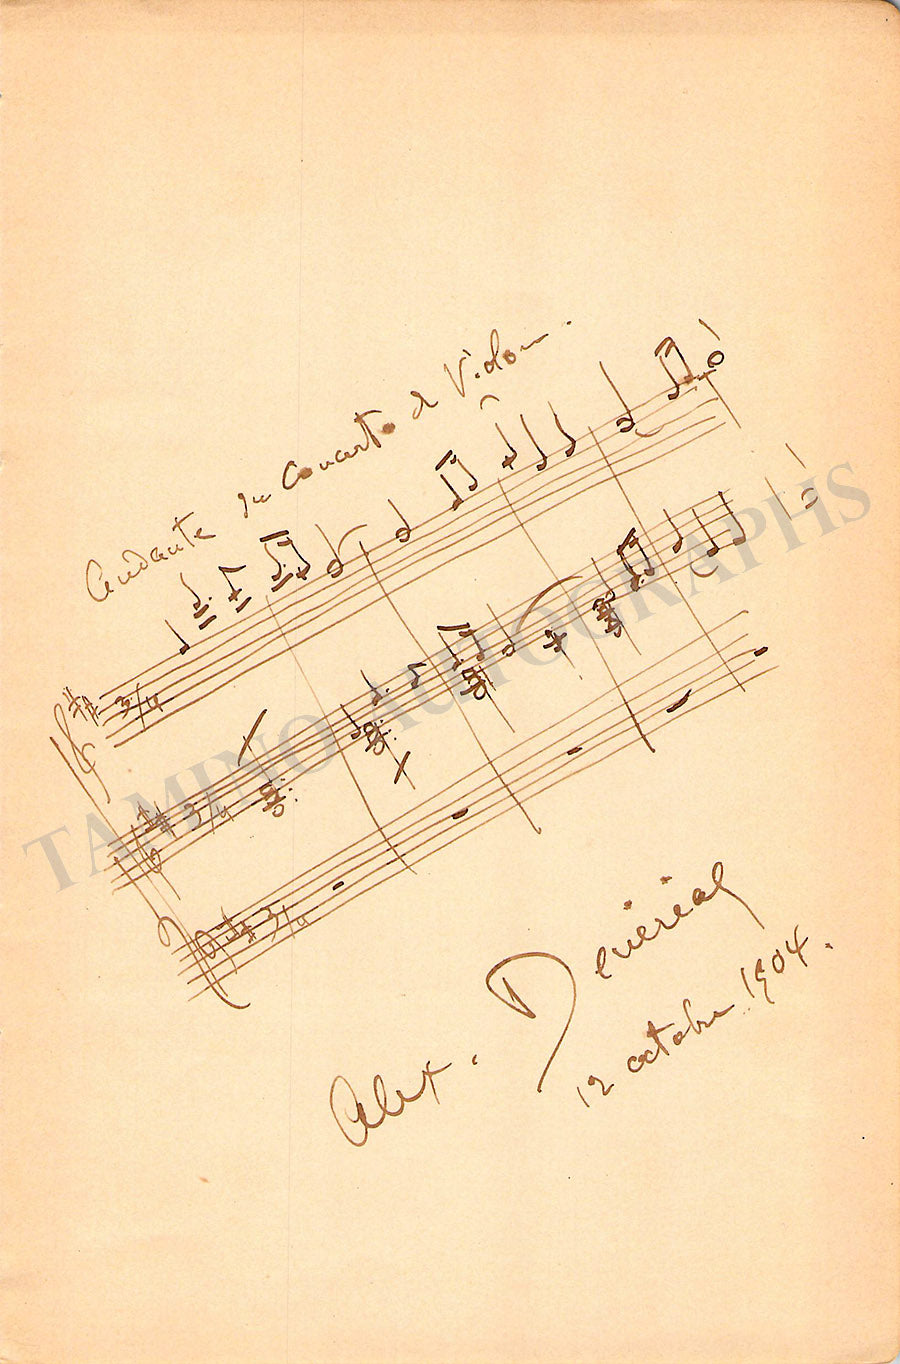 Andante du Concerto de Violon.
3/4
3/4
3/4
TAMINO AUTOGRAPHS
Alex. Dévériag
12 octobre 1904.